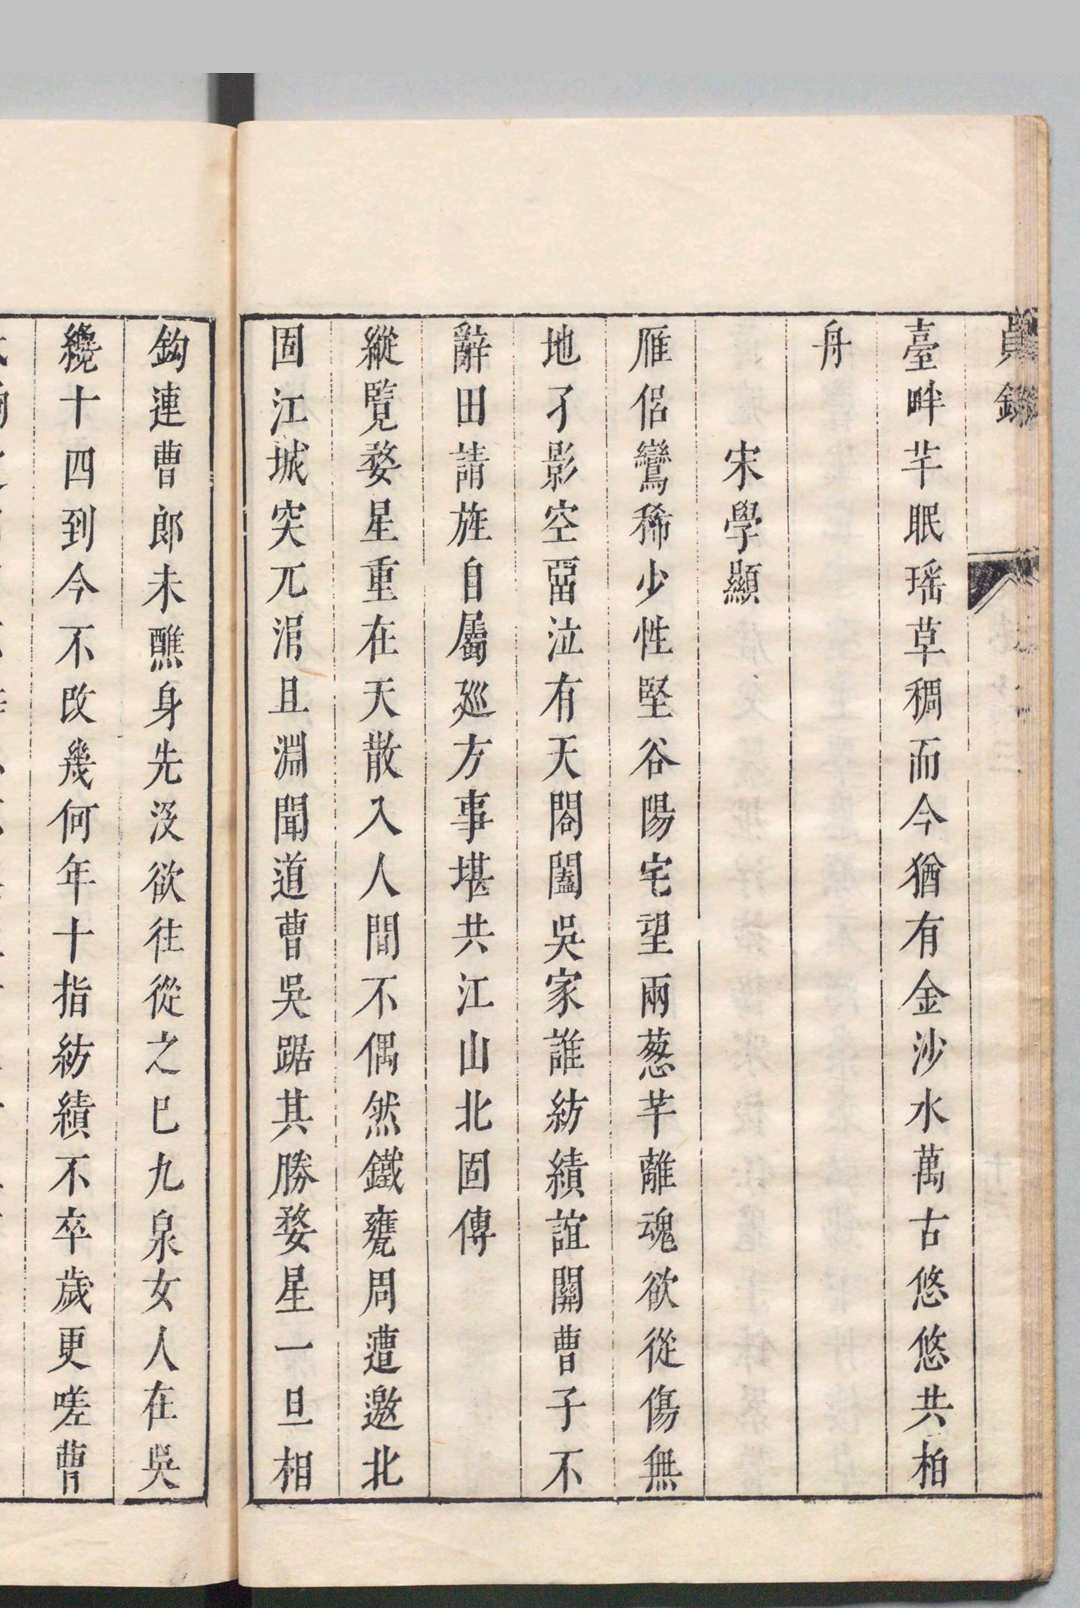 臺畔芊眠瑶草稠而今猶有金沙水萬古悠悠共柏
舟
宋學顯
雁侶鸞稀少性堅谷陽宅望兩葱芊離魂欲從傷無
地孑影空畱泣有天閤闔吳家誰紡績誼關曹子不
辭田請旌自屬廵方事堪共江山北固傳
縱覽婺星重在天散入人間不偶然鐵甕周遭邀北
固江城突兀涓且淵聞道曹吳踞其勝婺星一旦相
鈎連曹郎未醮身先沒欲往從之巳九泉女人在吳
纔十四到今不改幾何年十指紡績不卒歲更嗟曹